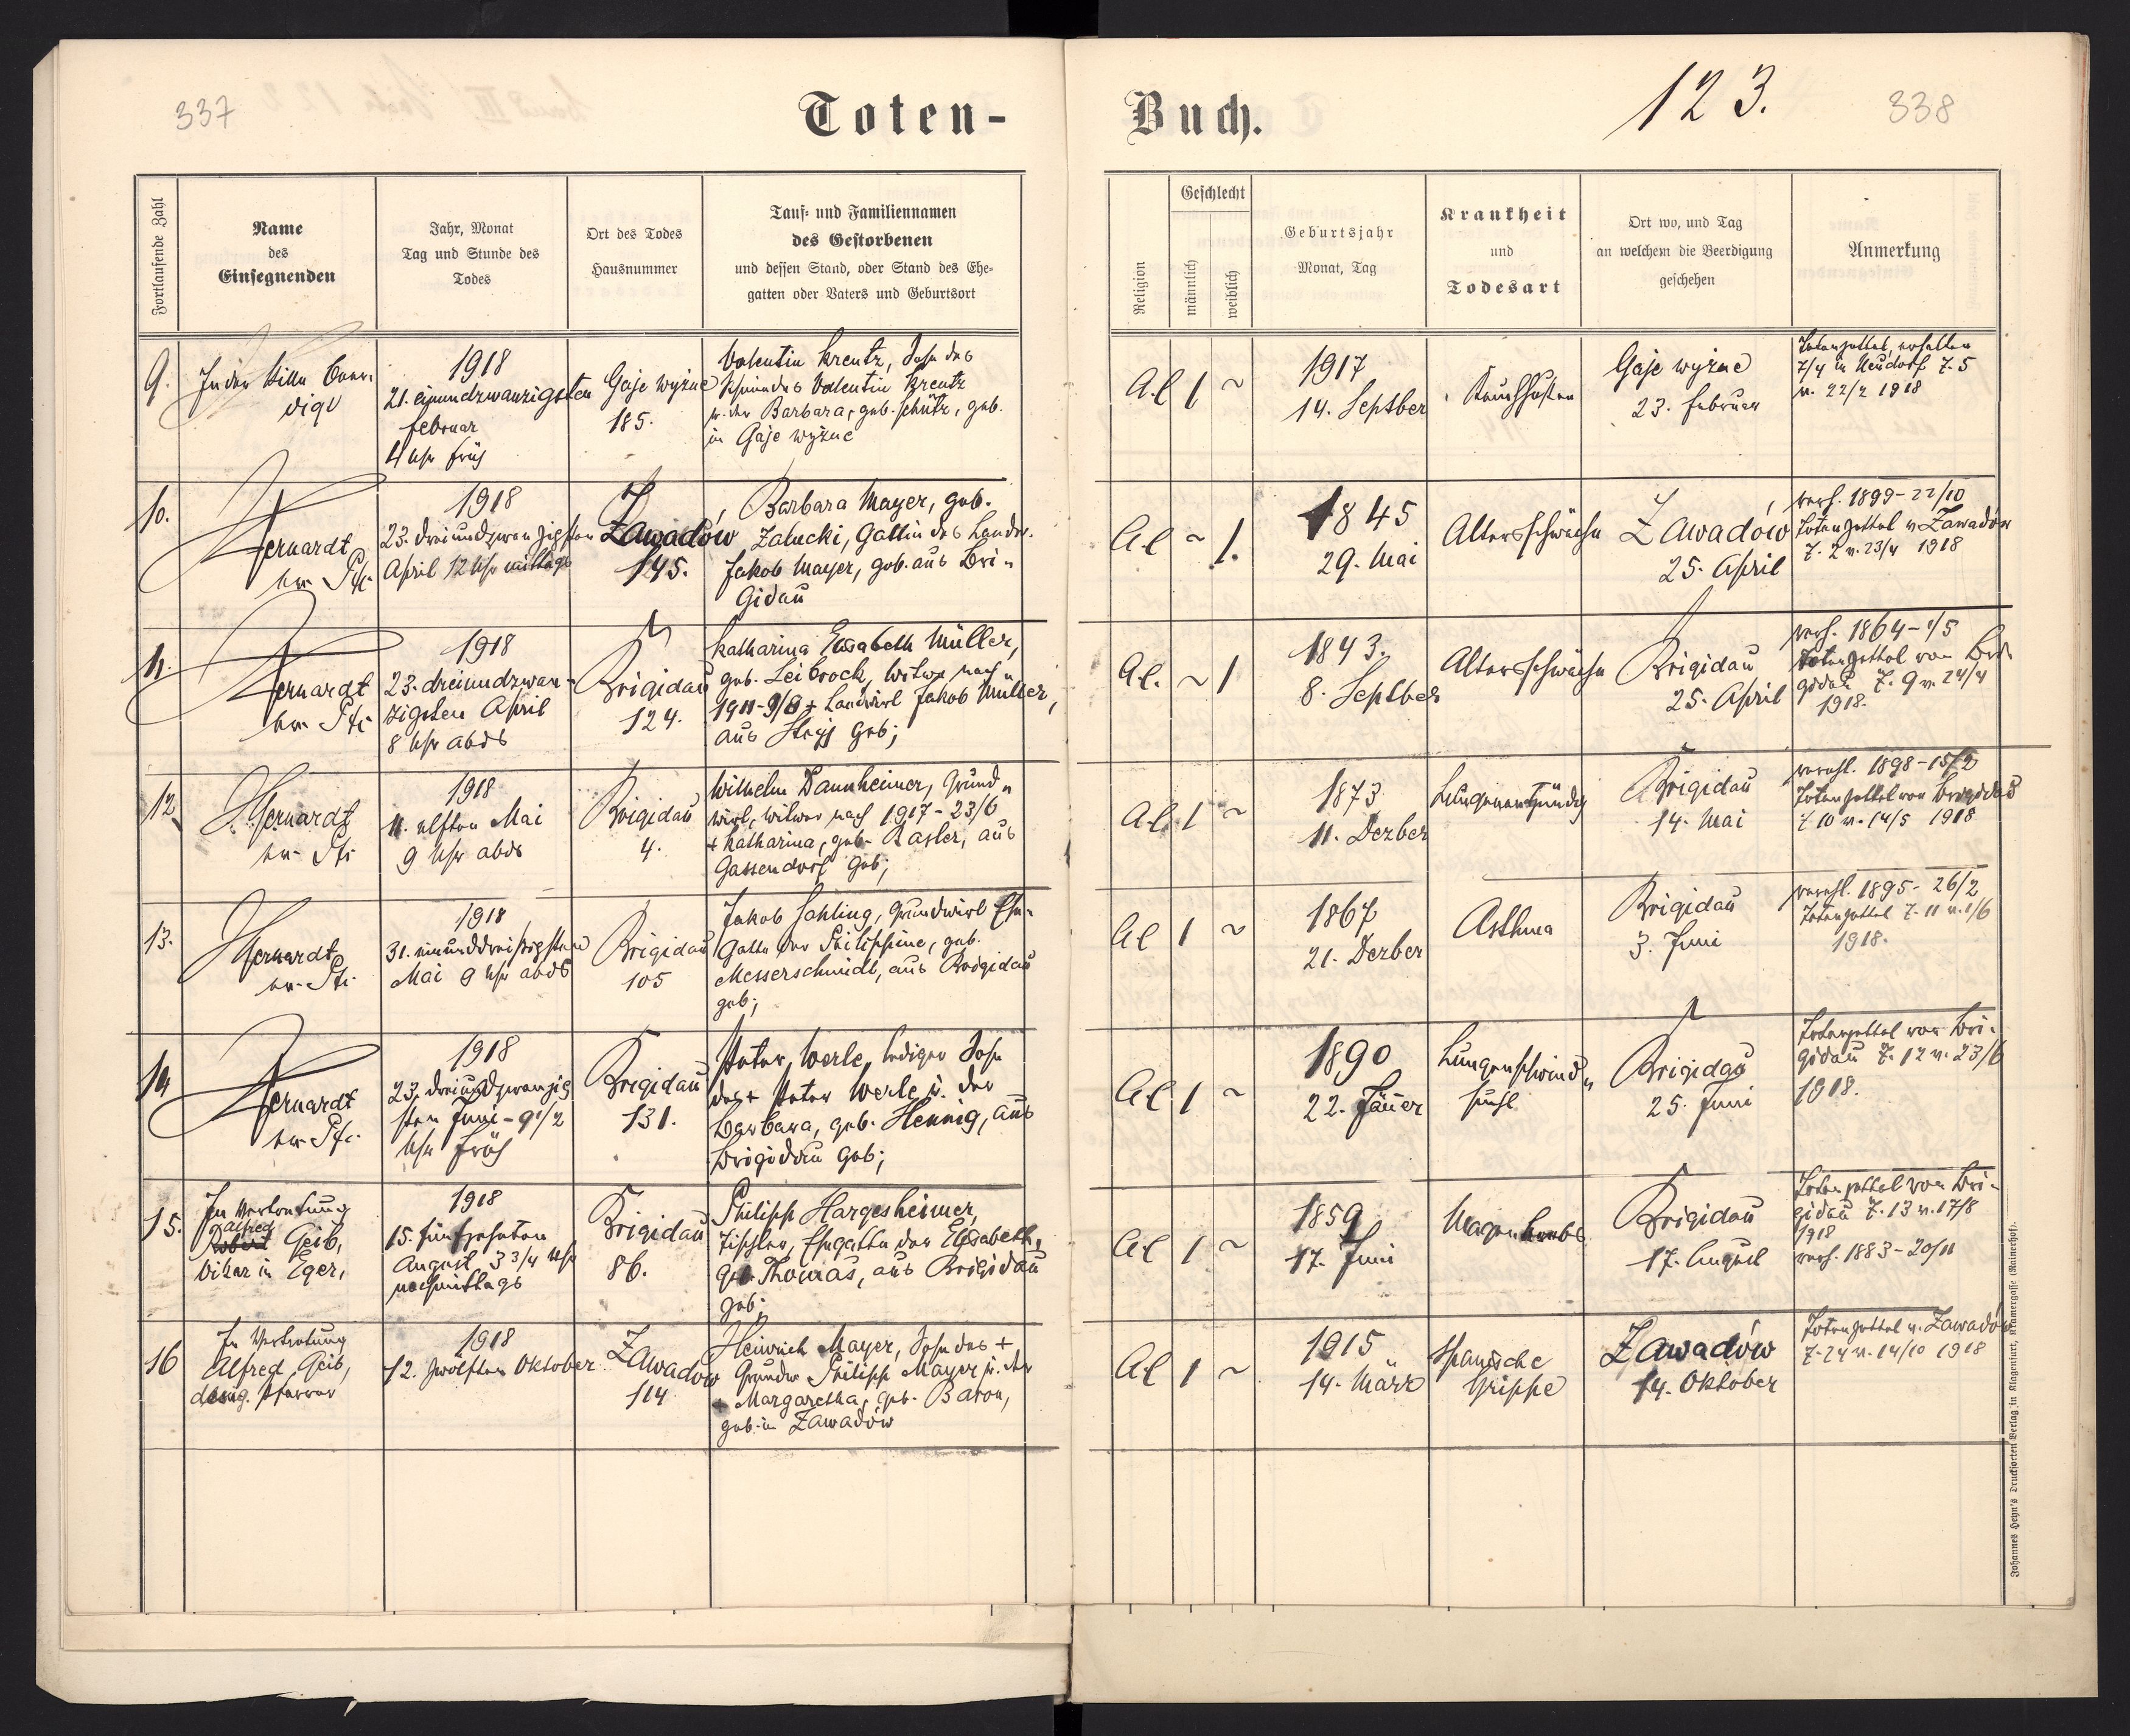 337
Toten-
Fortlaufende Zahl
Name
des
Einsegnenden
Jahr, Monat
Tag und Stunde des
Todes
Ort des Todes
Hausnummer
Tauf- und Familiennamen
des Gestorbenen
und dessen Stand, oder Stand des Ehe-
gatten oder Vaters und Geburtsort
9.
In der Stille
1918
21. einundzwanzigsten
februar
4 Uhr früh
Gaje wyżne
185.
Valentin Kreutz, Sohn des
Valentin Kreutz
u. der Barbara, geb. Schütz, geb.
in Gaje wyżne
10.
Hernardt
ev. Pf.
1918
23. dreiundzwanzigsten
April 12 Uhr mittags
Zawadów
145.
Barbara Mayer, geb.
Zalucki, Gattin des Landw.
Jakob Mayer, geb. aus Bri-
gidau
11.
Hernardt
ev. Pf.
1918
23. dreiundzwan-
zigsten April
8 Uhr abds
Brigidau
124.
Katharina Elisabeth Müller,
geb. Leibrock, Witwe nach
1911-9/8 + Landwirt Jakob Müller,
aus Stryj geb;
12
Hernardt
ev. Pf.
1918
11. elften Mai
9 Uhr abds
Brigidau
4.
Wilhelm Dannheimer, Grund-
wirt, Witwer nach 1917-23/6
+ Katharina, geb. Basler, aus
Gassendorf geb;
13.
Hernardt
ev. Pf.
1918
31. einunddreißigsten
Mai 9 Uhr abds
Brigidau
105
Jakob Sahling, Grundwirt Ehe-
gatte der Philippine, geb.
Messerschmidt, aus Brigidau
geb;
14
Hernardt
ev. Pf.
1918
23. dreiundzwanzig
sten Juni - 9 1/2
Uhr früh
Brigidau
131.
Peter Werle, lediger Sohn
des + Peter Werle u. der
Barbara, geb. Hennig, aus
Brigidau geb;
15.
In Vertretung
Alfred
Robert Geib,
Vikar in Eger,
1918
15. fünfzehnten
August, 3 3/4 Uhr
nachmittags
Brigidau
86.
Philipp Hargesheimer,
Tischler, Ehegatte der Elisabeth,
geb. Thomas, aus Brigidau
geb;
16
In Vertretung
Alfred Geib,
desig. Pfarrer
1918
12. zwölften Oktober
Zawadów
114
Heinrich Mayer, Sohn des +
Grundw Philipp Mayer u. der
+ Margaretha, geb. Baron,
geb. in Zawadów
Buch.
123.
338
Religion
Geschlecht
männlich
weiblich
Geburtsjahr
Monat, Tag
Krankheit
und
Todesart
Ort wo, und Tag
an welchem die Beerdigung
geschehen
Anmerkung
A.C 1 ~
1917
14. Septber
Keuchhusten
Gaje wyżne
23. februar
Totenzettel, erhalten
7/4 in Neudorf Z. 5
v. 22/2 1918
A.C ~ 1.
1845
29. Mai
Altersschwäche
Zawadów
25. April
verh. 1899-22/10
Totenzettel v. Zawadów
Z. 2 v. 23/4 1918
A.C. ~ 1
1843.
8. Septber
Altersschwäche
Brigidau
25. April
verh. 1864-1/5
Totenzettel von Bri-
gidau Z. 9 v. 24/4
1918.
A.C 1 ~
1873
11. Dezber
Lungenentzündg
Brigidau
14. Mai
verehl. 1898-15/2
Totenzettel von Brigidau
Z 10 v. 14/5 1918
A.C 1 ~
1867
21. Dezber
Asthma
Brigidau
3. Juni
verehl. 1895- 26/2
Totenzettel Z. 11 v. 1/6
1918.
A.C 1 ~
1890
22. Jäner
Lungenschwind-
sucht
Brigidau
25. Juni
Totenzettel von Bri-
gidau Z. 12 v. 23/6
1918.
A.C 1 ~
1859
17. Juni
Magenkrebs
Brigidau
17. August
Totenzettel von Bri-
gidau Z. 13 v. 17/8
1918
verh. 1883-20/11
A.C 1 ~
1915
14. März
Spanische
Grippe
Zawadów
14. Oktober
Totenzettel v. Zawadów
Z. 24 v. 14/10 1918
Johannes Heyn's Drucksorten Verlag in Klagenfurt, Kramergasse (Rainerhof).